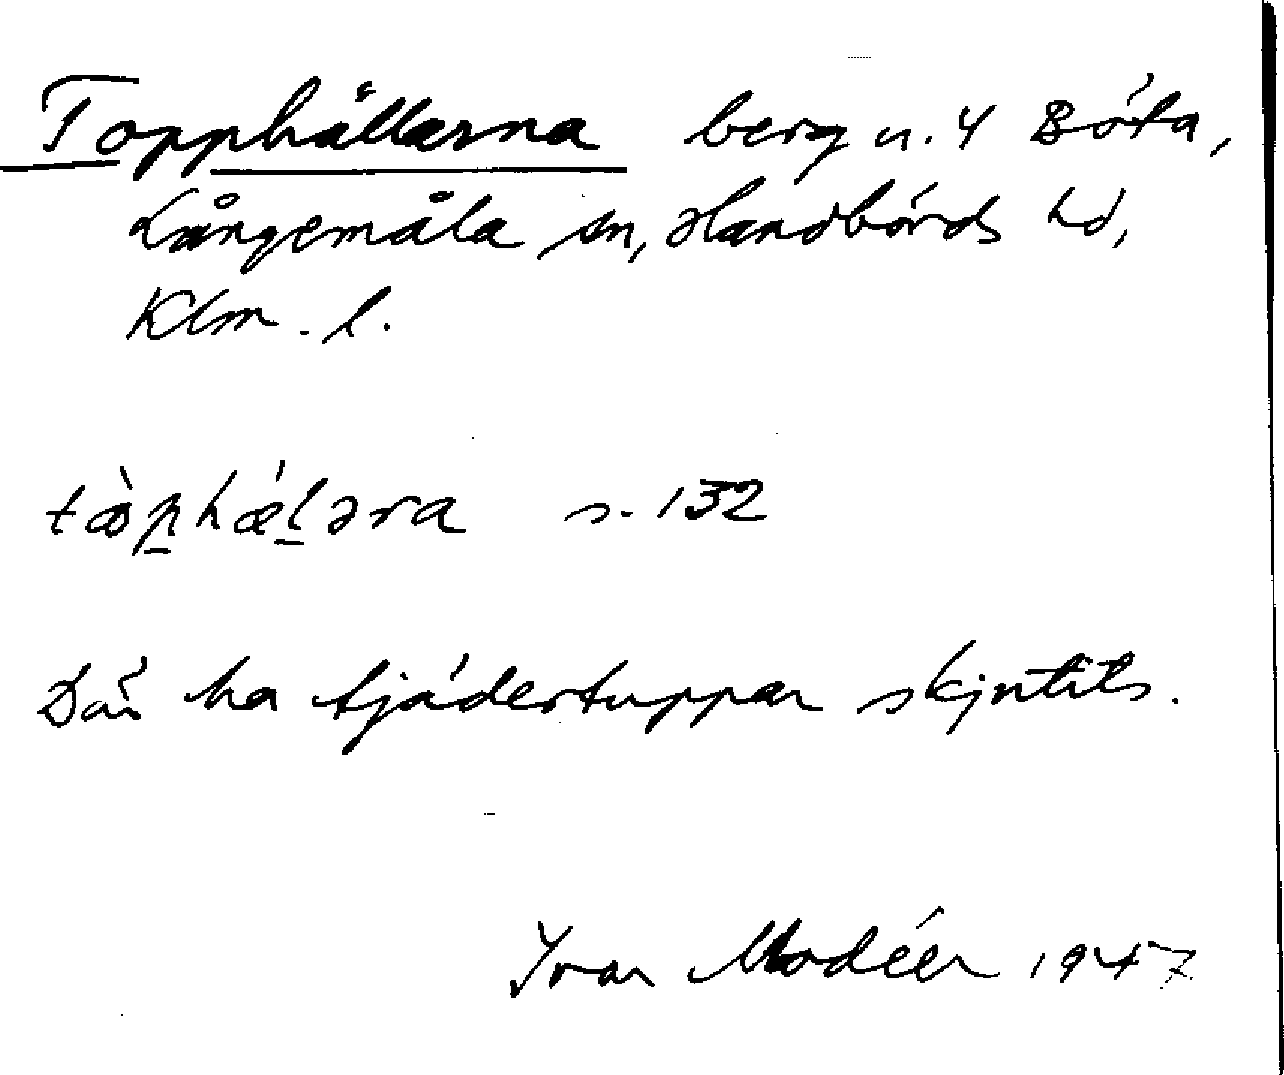 Topphällarna berg n. 4 Böta,
Långemåla sn, Handbörds hd,
Klm. l.
tòp̱hǽḻəra s. 132
Där ha tjädertuppar skjutits.
Ivar Modéer 1947